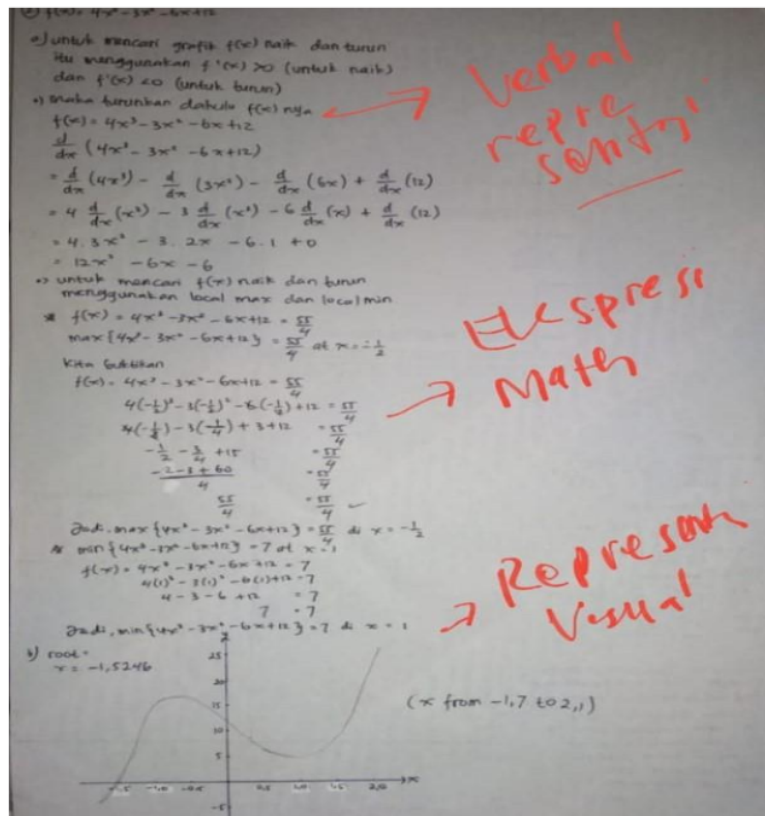 ② f(x) = 4x³ - 3x² - 6x + 12
a) untuk mencari grafik f(x) naik dan turun
itu menggunakan f'(x) > 0 (untuk naik)
dan f'(x) < 0 (untuk turun)
•) maka turunkan dahulu f(x) nya
f(x) = 4x³ - 3x² - 6x + 12
d/dx (4x³ - 3x² - 6x + 12)
= d/dx (4x³) - d/dx (3x²) - d/dx (6x) + d/dx (12)
= 4 d/dx (x³) - 3 d/dx (x²) - 6 d/dx (x) + d/dx (12)
= 4 . 3x² - 3 . 2x - 6 . 1 + 0
= 12x² - 6x - 6
•) untuk mencari f(x) naik dan turun
menggunakan local max dan local min
* f(x) = 4x³ - 3x² - 6x + 12 = 55/4
max {4x³ - 3x² - 6x + 12} = 55/4 at x = -1/2
Kita buktikan
f(x) = 4x³ - 3x² - 6x + 12 = 55/4
4(-1/2)³ - 3(-1/2)² - 6(-1/2) + 12 = 55/4
4(-1/8) - 3(1/4) + 3 + 12 = 55/4
-1/2 - 3/4 + 15 = 55/4
-2 - 3 + 60 / 4 = 55/4
55/4 = 55/4 ✓
Jadi, max {4x³ - 3x² - 6x + 12} = 55/4 di x = -1/2
* min {4x³ - 3x² - 6x + 12} = 7 at x = 1
f(x) = 4x³ - 3x² - 6x + 12 = 7
4(1)³ - 3(1)² - 6(1) + 12 = 7
4 - 3 - 6 + 12 = 7
7 = 7
Jadi, min {4x³ - 3x² - 6x + 12} = 7 di x = 1
b) root =
x = -1,5246
25
20
15
10
5
-5
-1,5 -1,0 -0,5 0,5 1,0 1,5 2,0 x
(x from -1,7 to 2,1)
Verbal
repre
sentasi
Ekspresi
Math
Represent
Visual